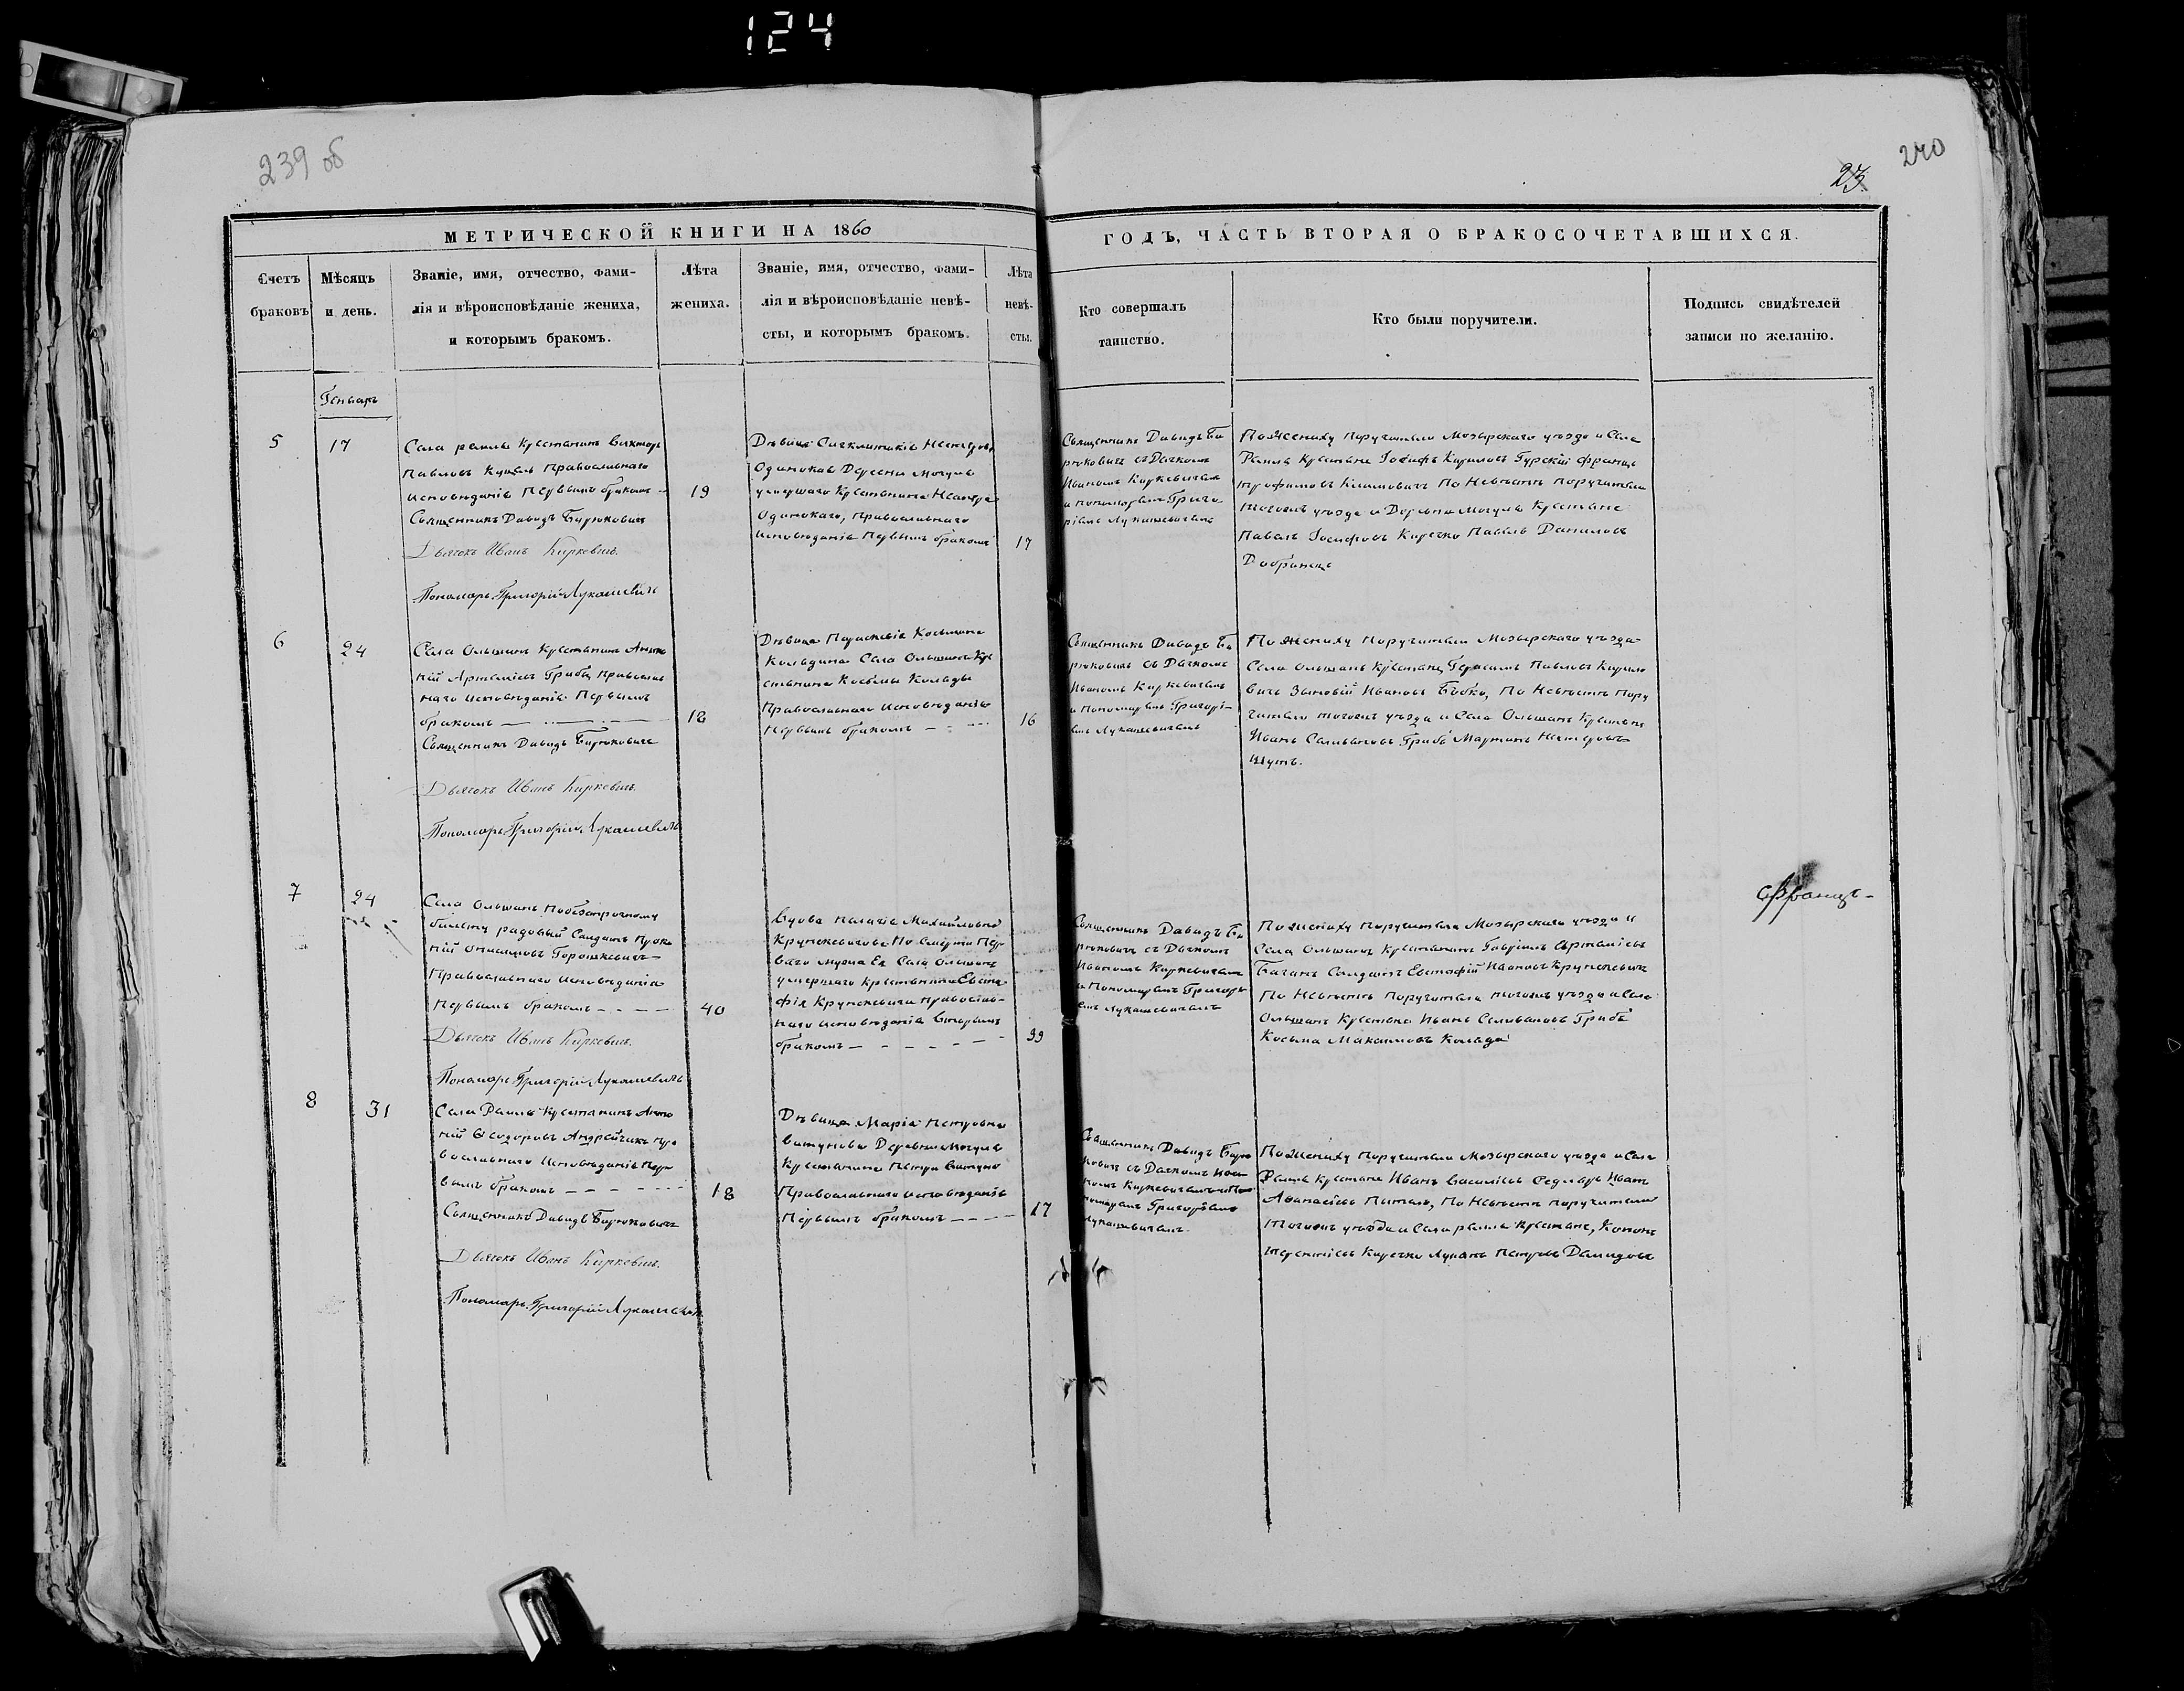 124
239 об
240
23
МЕТРИЧЕСКОЙ КНИГИ НА 1860
ГОДЪ, ЧАСТЬ ВТОРАЯ О БРАКОСОЧЕТАВШИХСЯ.
Счетъ
браковъ
Мѣсяцъ
и день.
Званіе, имя, отчество, фами-
лія и вѣроисповѣданіе жениха,
и которымъ бракомъ.
Лѣта
жениха.
Званіе, имя, отчество, фами-
лія и вѣроисповѣданіе невѣ-
сты, и которымъ бракомъ.
Лѣта
невѣ-
сты.
Кто совершалъ
таинство.
Кто были поручители.
Подпись свидѣтелей
записи по желанію.
Генварь
5
17
Села Рамля Крестьянинъ Викторъ
Павловъ Православнаго
Исповѣданія Первымъ бракомъ
Священникъ Давидъ Бирюковичъ
Дьячокъ Иванъ Киркевичъ.
Пономарь Григорій Лукашевичъ
19
Дѣвица Синклитикія Нестерова
Одинокая Деревни Могуля
умершаго Крестьянина Нестера
Одинокаго, Православнаго
Исповѣданія Первымъ бракомъ
17
Священникъ Давидъ Би
рюковичъ съ Дьячкомъ
Иваномъ Киркевичемъ
и Пономаремъ Григо
ріемъ Лукашевичемъ
По Жениху Поручители Мозырскаго уѣзда и Села
Рамля Крестьяне Іосифъ Кириловъ Турскій Францъ
Трофимовъ Климовичъ По Невѣстѣ Поручители
тогожъ уѣзда и Деревни Могуля Крестьяне
Павелъ Іосифовъ Киречко Павелъ Даниловъ
Добринецъ
6
24
Села Ольшанъ Крестьянинъ Анто
ній Артеміевъ Гриба Православ
наго Исповѣданія Первымъ
бракомъ
Священникъ Давидъ Бирюковичъ
Дьячокъ Иванъ Киркевичъ.
Пономарь Григорій Лукашевичъ
18
Дѣвица Параскевія Косьмина
Кольдина Села Ольшанъ Кре
стьянина Косьмы Кольды
Православнаго Исповѣданія
Первымъ бракомъ
16
Священникъ Давидъ Би
рюковичъ съ Дьячкомъ
Иваномъ Киркевичемъ
и Пономаремъ Григорі-
емъ Лукашевичемъ
По Жениху Поручители Мозырскаго уѣзда
Села Ольшанъ Крестьяне Герасимъ Павловъ Кирило
вичъ Зѣновій Ивановъ Бобко, По Невѣстѣ Пору
чители тогожъ уѣзда и Села Ольшанъ Крестьяне
Иванъ Селивановъ Гриба Мартинъ Нестеровъ
Шутъ.
7
24
Села Ольшанъ по безсрочному
билету рядовый Солдатъ Проко
пій Горошкевичъ
Православнаго Исповѣданія
Первымъ бракомъ
Дьячокъ Иванъ Киркевичъ.
Пономарь Григорій Лукашевичъ
40
Вдова Пелагія Михайловна
Крупкевичова По смерти Пер
ваго мужа Ея Села Ольшанъ
умершаго Крестьянина Евста
фія Крупкевича Православ-
наго Исповѣданія Вторымъ
бракомъ
39
Священникъ Давидъ Би
рюковичъ съ Дьячкомъ
Иваномъ Киркевичемъ
и Пономаремъ Григорі
емъ Лукашевичемъ
По Жениху Поручители Мозырскаго уѣзда и
Села Ольшанъ Крестьянинъ Гавріилъ Артеміевъ
Баганъ Солдатъ Евстафій Ивановъ Крупкевичъ
По Невѣстѣ Поручители тогожъ уѣзда и Села
Ольшанъ Крестьяне Иванъ Селивановъ Гриба
Косьма Максимовъ Кольда
Францъ-
8
31
Села Рамля Крестьянинъ Анто
ній Ѳеодоровъ Андрейчикъ Пра
вославнаго Исповѣданія Пер
вымъ бракомъ
Священникъ Давидъ Бирюковичъ
Дьячокъ Иванъ Киркевичъ.
Пономарь Григорій Лукашевичъ
18
Дѣвица Марія Петровна
Витунова Деревни Могуля
Крестьянина Петра Витуна
Православнаго Исповѣданія
Первымъ бракомъ
17
Священникъ Давидъ Бирю
ковичъ съ Дьячкомъ Ива
номъ Киркевичемъ и По
номаремъ Григоріемъ
Лукашевичемъ
По Жениху Поручители Мозырскаго уѣзда и Села
Рамля Крестьяне Иванъ Василіевъ Седляръ Иванъ
Аѳанасіевъ Пыталь, По Невѣстѣ Поручители
тогожъ уѣзда и Села Рамля Крестьяне, Кононъ
Терентіевъ Киречко Лукьянъ Петровъ Демидовъ